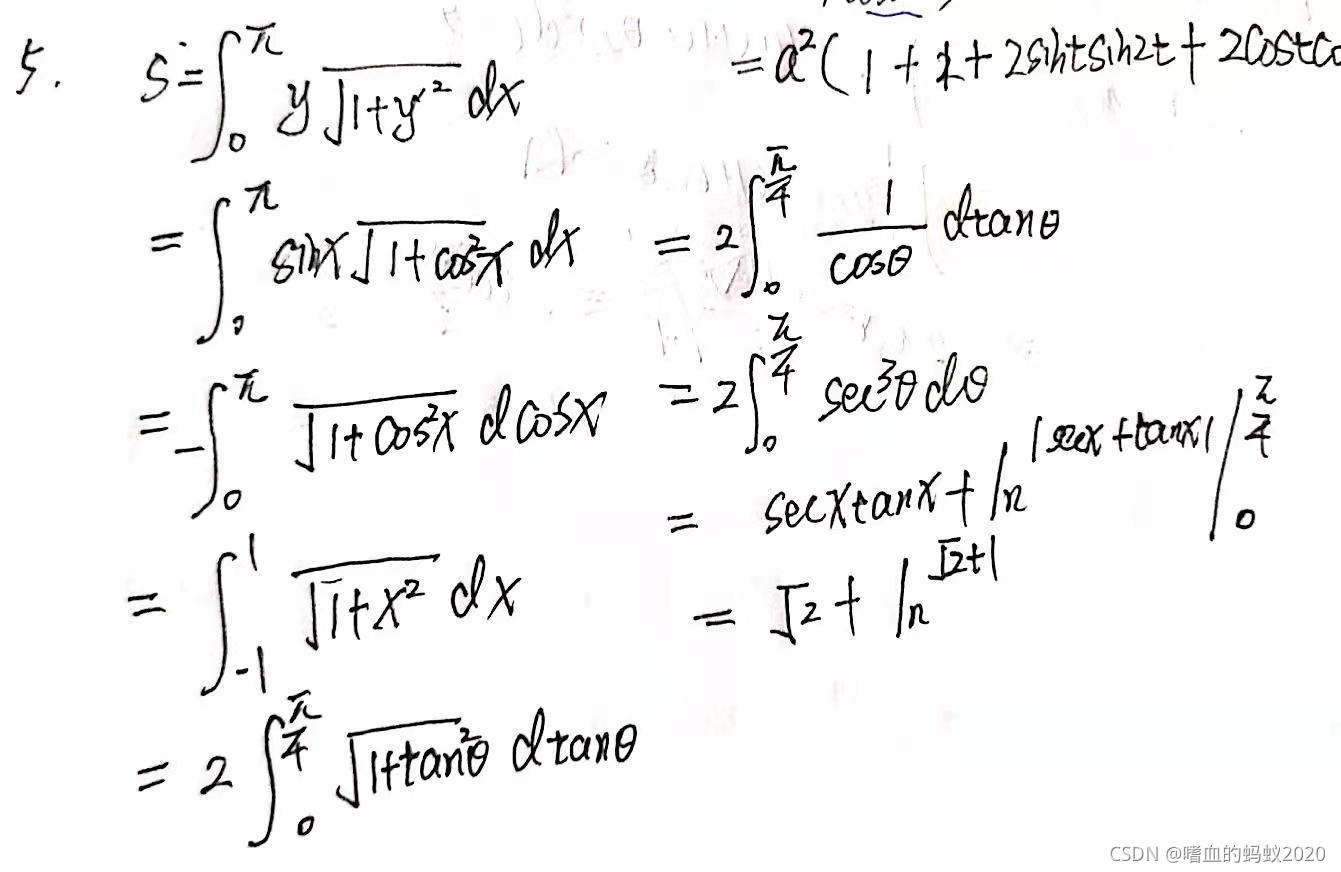 5. S = ∫₀^π y √(1+y'²) dx
= ∫₀^π sinx √(1+cos²x) dx
= -∫₀^π √(1+cos²x) dcosx
= ∫₋₁^1 √(1+x²) dx
= 2 ∫₀^(π/4) √(1+tan²θ) dtanθ
= a²(1+1+2sintsin2t+2costco
= 2 ∫₀^(π/4) 1/cosθ dtanθ
= 2 ∫₀^(π/4) sec³θ dθ
= secxtanx + ln^|secx+tanx| |₀^(π/4)
= √2 + ln^(√2+1)
CSDN @嗜血的蚂蚁2020